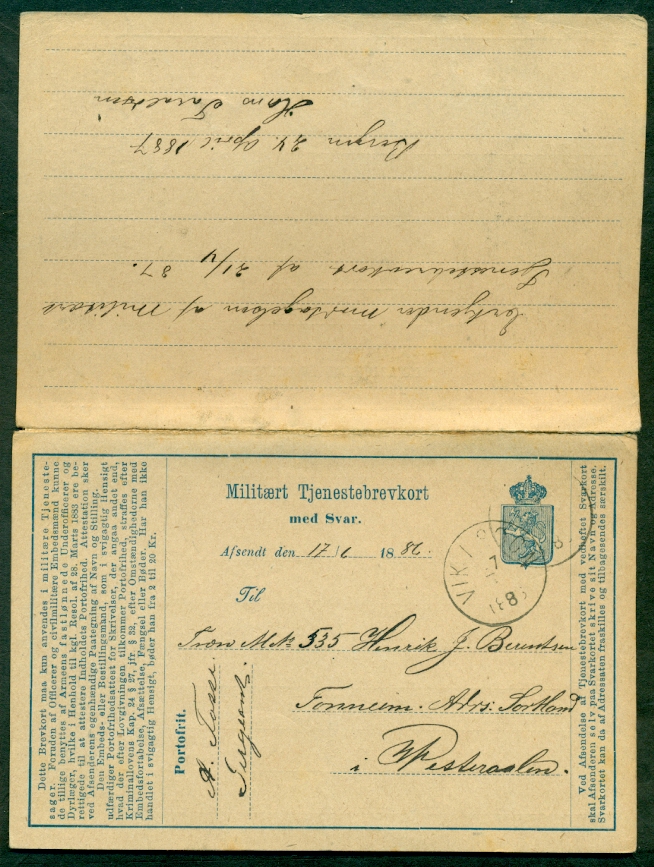 Erkjender modtagelsen af militært
Tjenestebrevkort af 21/4 87.
Bergen 24 april 1887
Hans
Militært Tjenestebrevkort
med Svar.
Afsendt den 17/6 1886.
Til
Henrik J.
Adrs: Sortland
i Westeraalen.
VIK I
Portofrit.
Dette Brevkort maa kun anvendes i militære Tjeneste-
sager. Foruden af Officerer og civilmilitære Embedsmænd kunne
de tillige benyttes af Armeens fastlønnede Underofficerer og
Dyrlæger, hvilke i Henhold til kgl. Resol. af 28. Marts 1883 ere be-
rettigede til at attestere Indholdets Portofrihed. Attestation sker
ved Afsenderens egenhændige Paategning af Navn og Stilling.
Den Embeds- eller Bestillingsmand, som i svigagtig Hensigt
udfærdiger Portofrihedsattest for Skrivelser, der angaa andet end,
hvad der efter Lovgivningen tilkommer Portofrihed, straffes efter
Kriminallovens Kap. 24 § 27, jfr. § 32, efter Omstændighederne med
Embedsfortabelse, Afsættelse, Fængsel eller Bøder. Har han ikke
handlet i svigagtig Hensigt, bøder han fra 2 til 20 Kr.
Ved Afsendelse af Tjenestebrevkort med vedheftet Svarkort
skal Afsenderen selv paa Svarkortet skrive sit Navn og Adresse.
Svarkortet kan da af Adressaten fraskilles og tilbagesendes særskilt.